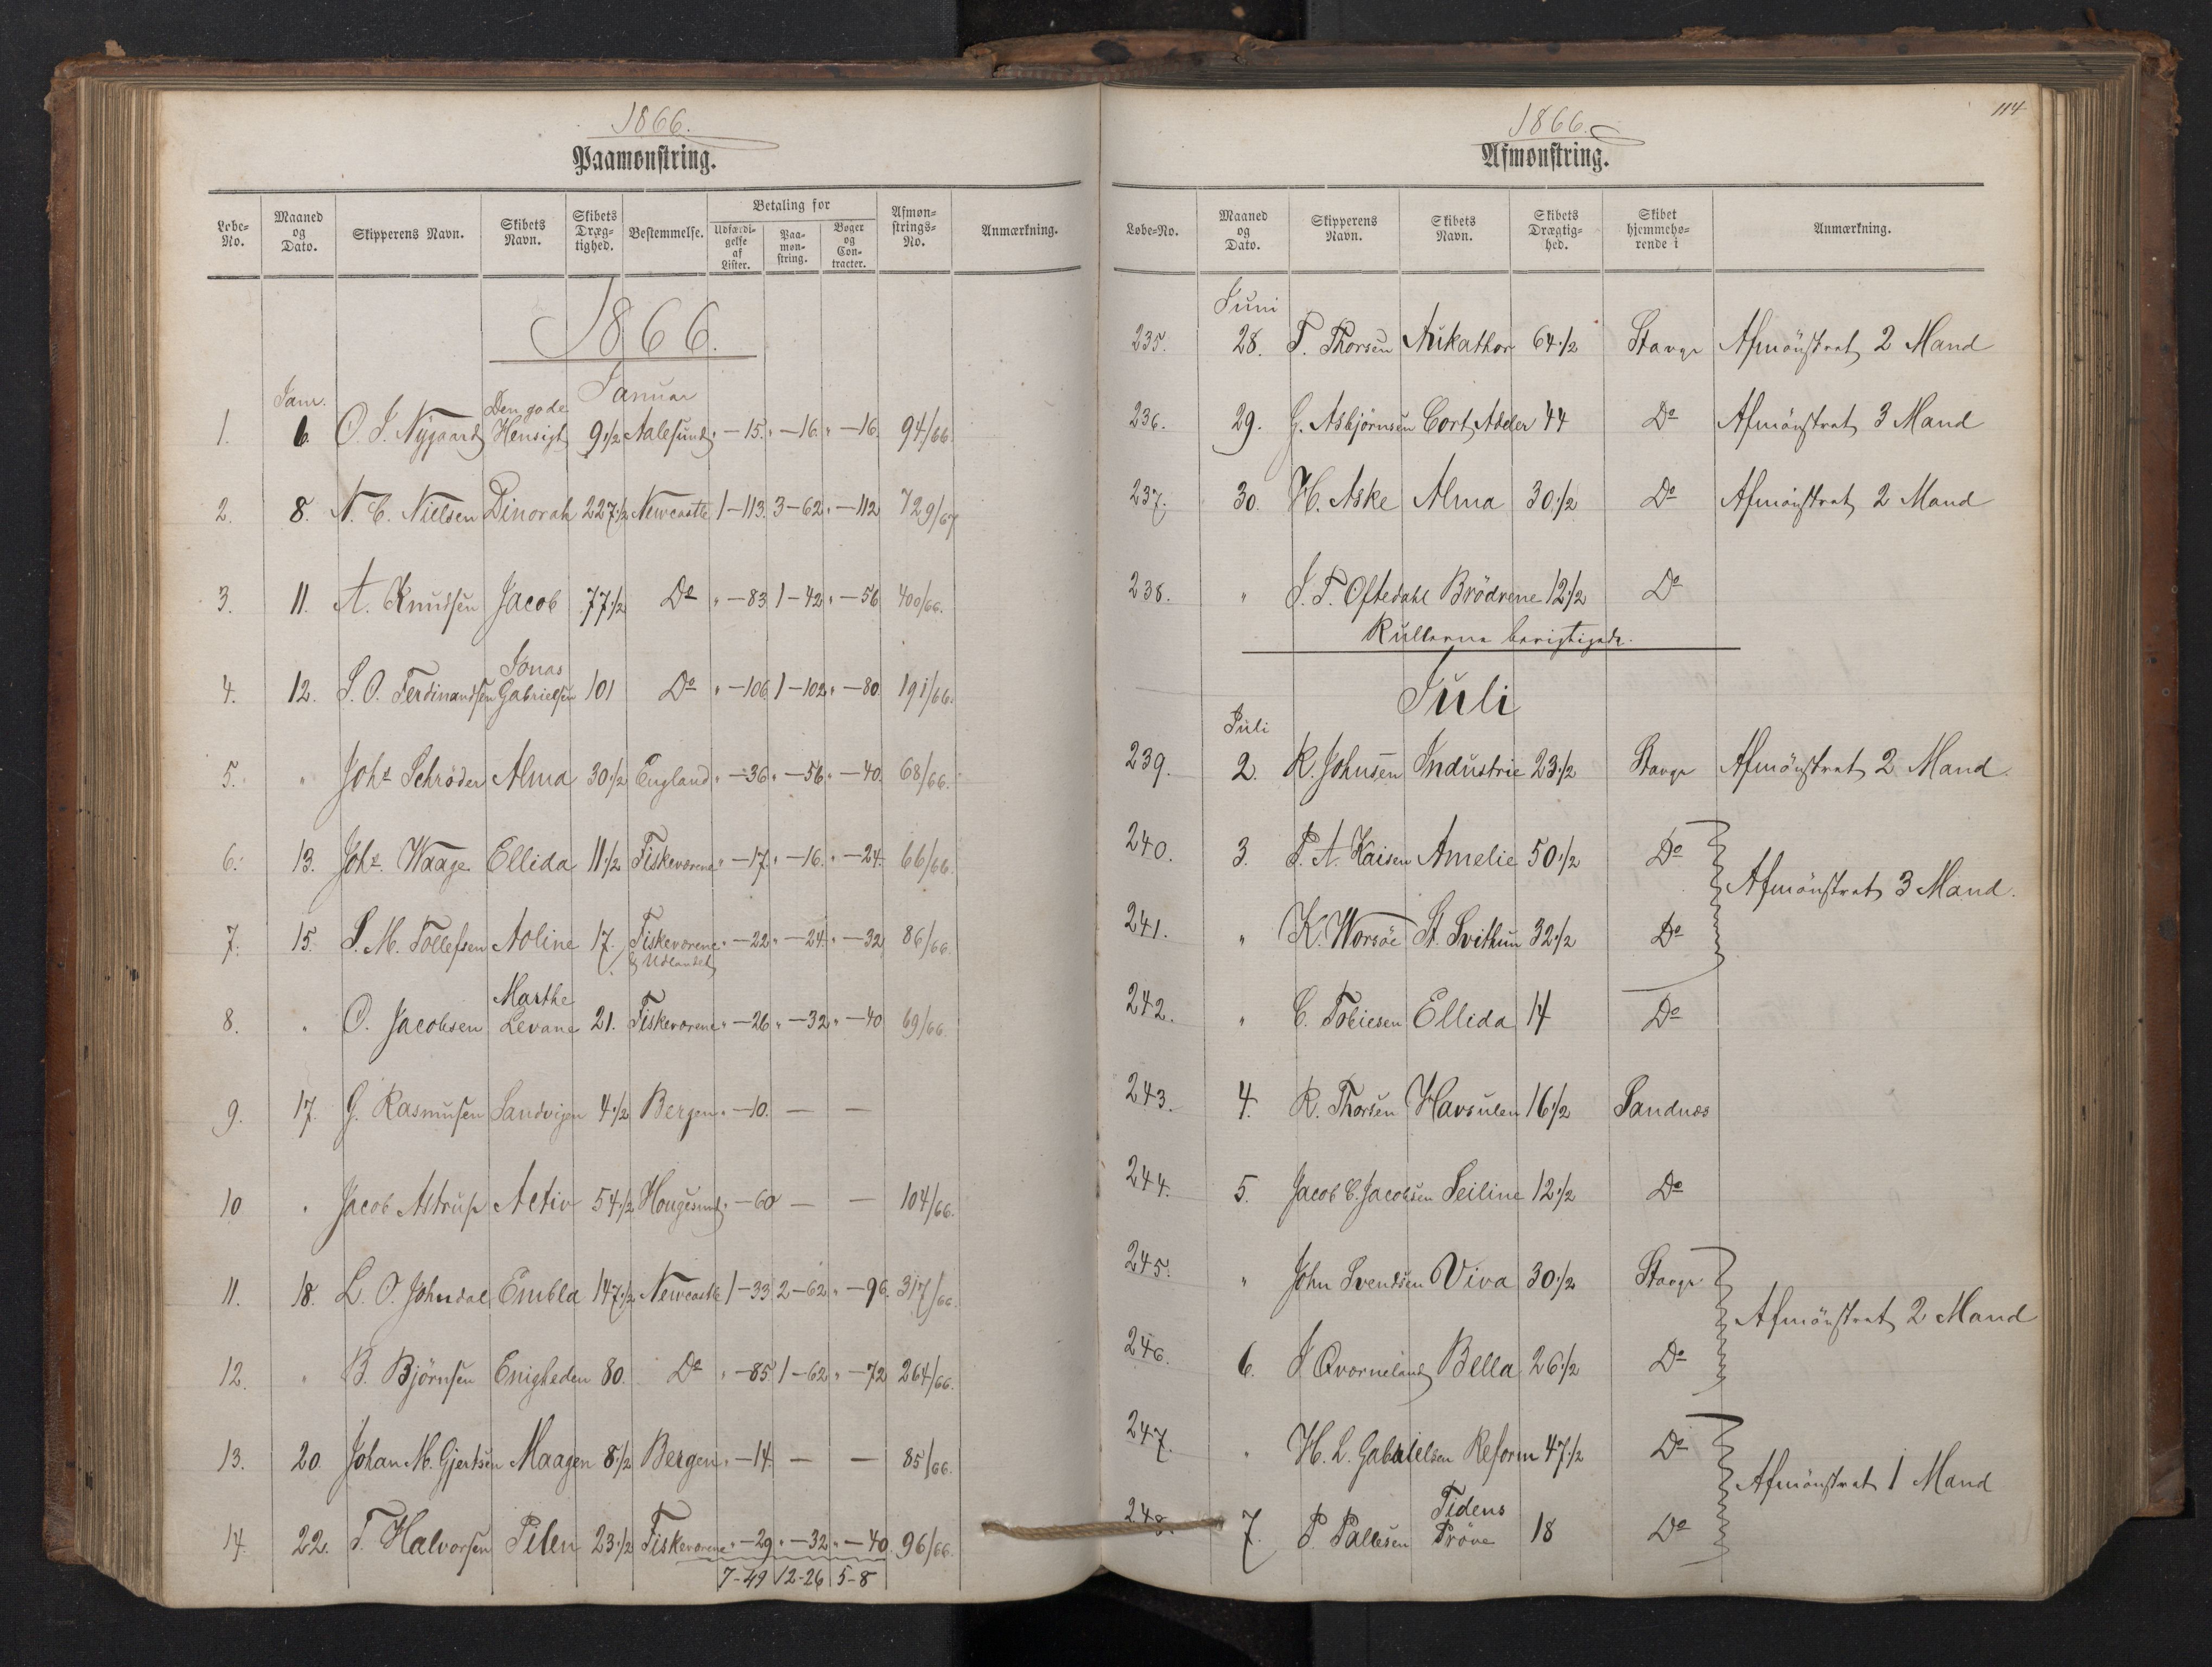 1866.
Paamønstring.
Løbe-No. Maaned og Dato. Skipperens Navn. Skibets Navn. Skibets Dræg-tighed. Bestemmelse. Betaling for Udfærdi-gelse af Lister. Paa-møn-string. Bøger og Con-tracter. Afmøn-strings-No. Anmærkning.
1866.
Januar
Janr.
1. 6. O. J. Nygaard Den gode Hensigt 9 1/2 Aalesund " - 15. " - 16. " - 16. 94/66.
2. 8. N. C. Nielsen Dinorah 227 1/2 Newcastle 1 - 113. 3 - 62 " - 112 729/67
3. 11. A. Knudsen Jacob 77 1/2 Do " - 83 1 - 42 " - 56 400/66.
4. 12. S. O. Ferdinandsen Jonas Gabrielsen 101 Do " - 106 1 - 102 " - 80 191/66.
5. " Johs Schröder Alma 30 1/2 England " - 36 " - 56 " - 40. 68/66.
6. 13. Johs. Waage Ellida 11 1/2 Fiskeværene " - 17. " - 16. " - 24. 66/66.
7. 15. S. M. Tollefsen Aoline 17. Fiskeværene & Udlandet " - 22 " - 24. " - 32 86/66.
8. " O. Jacobsen Marthe Levane 21. Fiskeværene " - 26 " - 32 " - 40 69/66.
9. 17. G. Rasmusen Sandvigen 4 1/2 Bergen " - 10. — —
10 " Jacob Astrup Activ 54 1/2 Hougesund " - 60 — — 104/66.
11. 18. L. O. Johndal Embla 147 1/2 Newcastle 1 - 33 2 - 62 " - 96. 317/66.
12. " B. Björnsen Enigheden 80. Do " - 85 1 - 62 " - 72 264/66.
13. 20. Johan M. Gjertsen Maagen 8 1/2 Bergen " - 14. — — 85/66.
14. 22. T. Halvorsen Pilen 23 1/2 Fiskeværene " - 29 " - 32 " - 40. 96/66.
7-49 12-26 5-8
114
1866.
Afmønstring.
Løbe-No. Maaned og Dato. Skipperens Navn. Skibets Navn. Skibets Drægtig-hed. Skibet hjemmehø-rende i Anmærkning.
Juni
235. 28. T. Thorsen Aukathor 64 1/2 Stavgr Afmönstret 2 Mand
236. 29. G. Asbjørnsen Cort Adeler 44 Do Afmönstret 3 Mand
237. 30. H. Aske Alma 30 1/2 Do Afmönstret 2 Mand
238. " J. T. Oftedahl Brödrene 12 1/2 Do
Rullerne berigtigede.
Juli
Juli
239. 2. R. Johnsen Industrie 23 1/2 Stavgr Afmönstret 2 Mand.
240. 3. P. A. Kaisen Amelie 50 1/2 Do
Afmönstret 3 Mand.
241. " K. Worsöe St. Svithun 32 1/2 Do
242. " C. Tobiesen Ellida 14 Do
243. 4. R. Thorsen Havsulen 16 1/2 Sandnæs
244. 5. Jacob C. Jacobsen Seiline 12 1/2 Do
245. " John Svendsen Viva 30 1/2 Stavgr
Afmönstret 2 Mand
246. 6. J Qvorneland Bella 26 1/2 Do
247. " H. L. Gabrielsen Reform 47 1/2 Do
Afmönstret 1 Mand
248. 7. P. Pallesen Tidens Pröve 18 Do